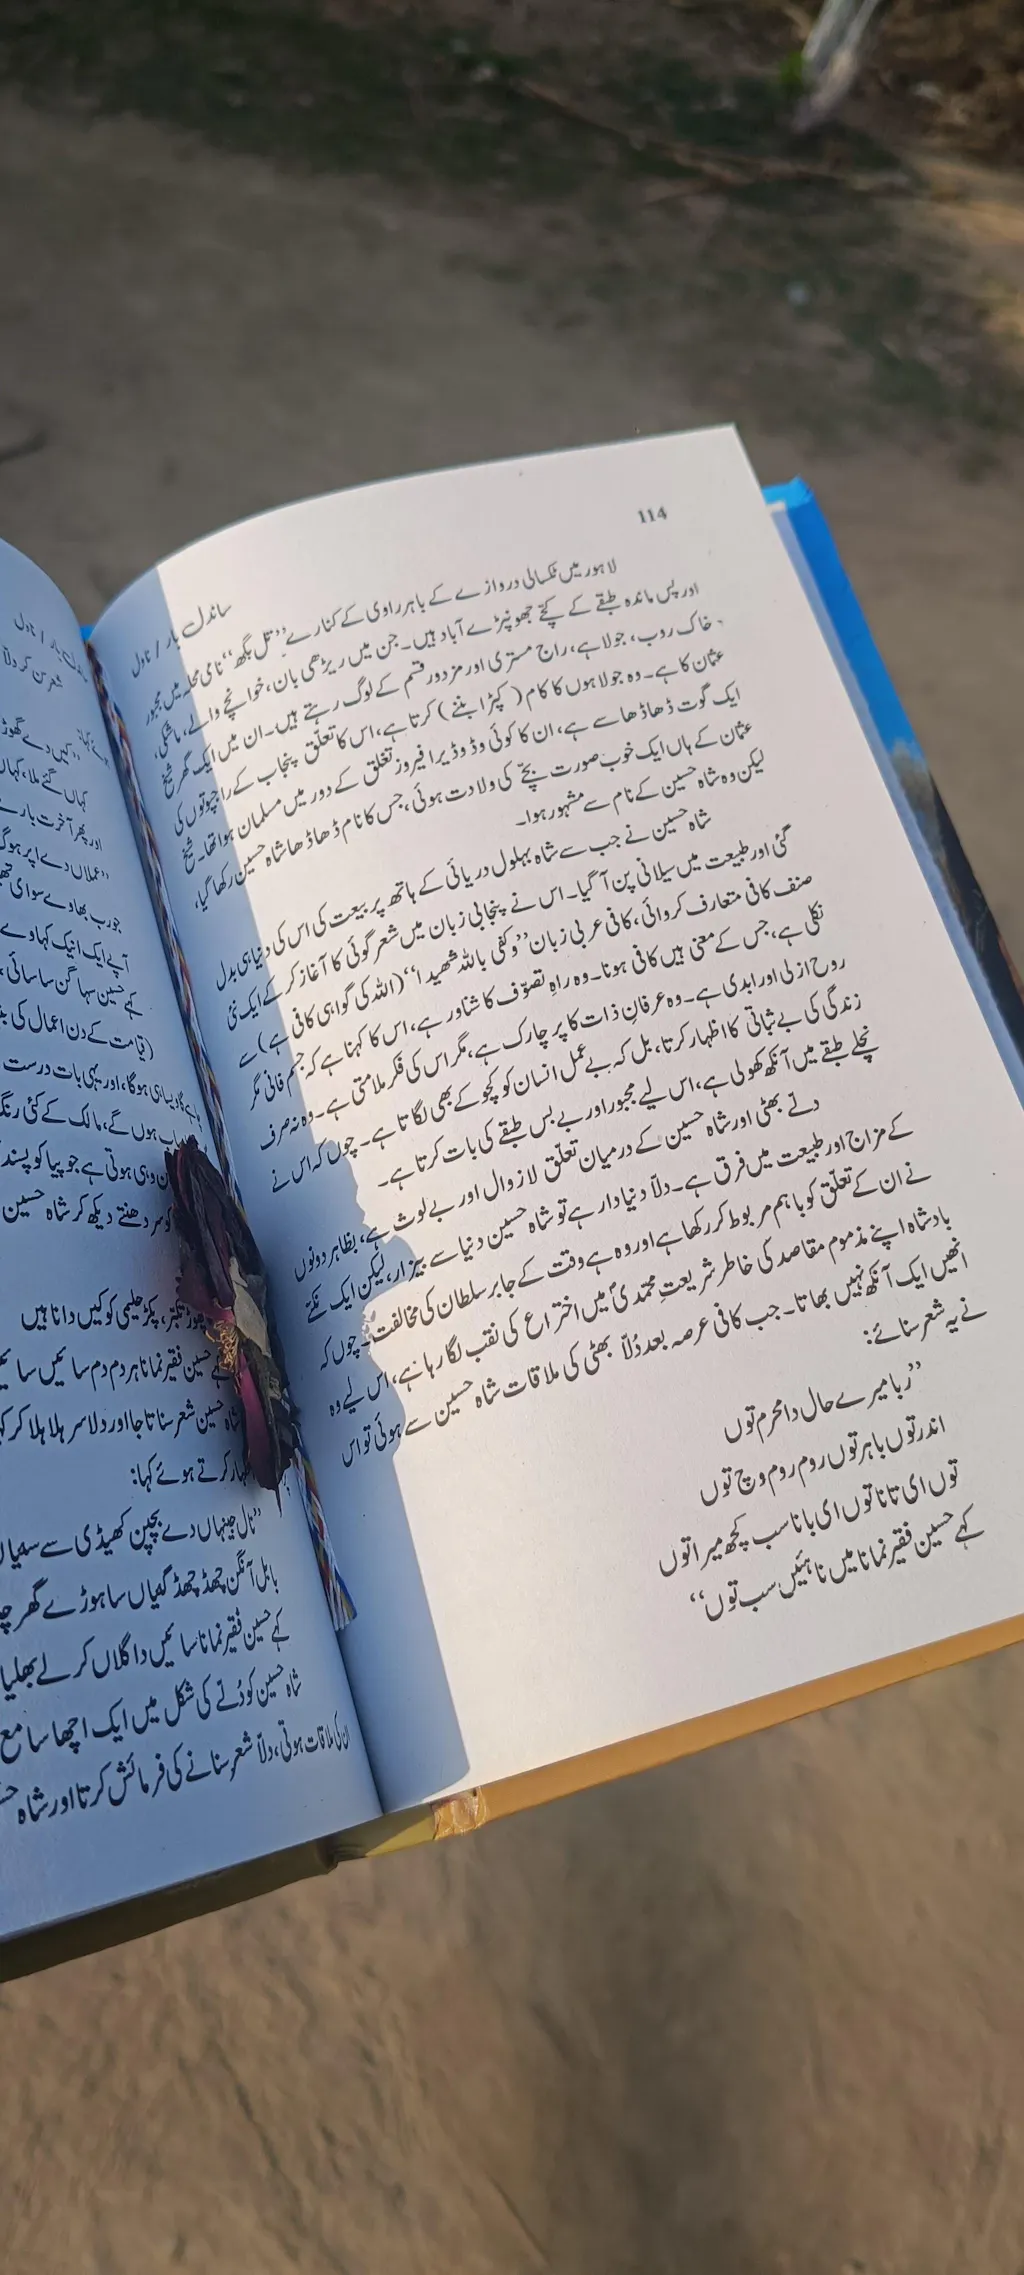 114
ساندل بار / ناول
لاہور میں ٹکسالی دروازے کے باہر راوی کے کنارے ’’تل بگھ‘‘ نامی محلہ میں مجبور
اور پس ماندہ طبقے کے کچے جھونپڑے آباد ہیں۔ جن میں ریڑھی بان، خوانچے والے، ماشکی،
خاک روب، جولاہے، راج مستری اور مزدور قسم کے لوگ رہتے ہیں۔ ان میں ایک گھر شیخ
عثمان کا ہے۔ وہ جولاہوں کا کام (کپڑا بننے) کرتا ہے، اس کا تعلق پنجاب کے راجپوتوں کی
ایک گوت ڈھاڈھا سے ہے، ان کا کوئی وڈ وڈیرا فیروز تغلق کے دور میں مسلمان ہوا تھا۔ شیخ
عثمان کے ہاں ایک خوب صورت بچے کی ولادت ہوئی، جس کا نام ڈھاڈھا شاہ حسین رکھا گیا،
لیکن وہ شاہ حسین کے نام سے مشہور ہوا۔
شاہ حسین نے جب سے شاہ بہلول دریائی کے ہاتھ پر بیعت کی اس کی دنیا ہی بدل
گئی اور طبیعت میں سیلانی پن آ گیا۔ اس نے پنجابی زبان میں شعر گوئی کا آغاز کر کے ایک نئی
صنف کافی متعارف کروائی، کافی عربی زبان ’’وکفی باللہ شھیدا‘‘ (اللہ کی گواہی کافی ہے) سے
نکلی ہے، جس کے معنی ہیں کافی ہونا۔ وہ راہِ تصوّف کا شناور ہے، اس کا کہنا ہے کہ جسم فانی مگر
روح ازلی اور ابدی ہے۔ وہ عرفانِ ذات کا پرچارک ہے، مگر اس کی فکر ملامتی ہے۔ وہ نہ صرف
زندگی کی بے ثباتی کا اظہار کرتا، بل کہ بے عمل انسان کو کچوکے بھی لگاتا ہے۔ چوں کہ اس نے
نچلے طبقے میں آنکھ کھولی ہے، اس لیے مجبور اور بے بس طبقے کی بات کرتا ہے۔
دلے بھٹی اور شاہ حسین کے درمیان تعلق لازوال اور بے لوث ہے، بظاہر دونوں
کے مزاج اور طبیعت میں فرق ہے۔ دلاّ دنیا دار ہے تو شاہ حسین دنیا سے بیزار، لیکن ایک نکتے
نے ان کے تعلق کو باہم مربوط کر رکھا ہے اور وہ ہے وقت کے جابر سلطان کی مخالفت۔ چوں کہ
بادشاہ اپنے مذموم مقاصد کی خاطر شریعتِ محمدیؐ میں اختراع کی نقب لگا رہا ہے، اس لیے وہ
انھیں ایک آنکھ نہیں بھاتا۔ جب کافی عرصہ بعد دُلاّ بھٹی کی ملاقات شاہ حسین سے ہوئی تو اس
نے یہ شعر سنائے:
’’ربا میرے حال دا محرم توں
اندر توں باہر توں روم روم وچ توں
توں ای تانا توں ای بانا سب کچھ میرا توں
کہے حسین فقیر نمانا میں ناہئیں سب توں‘‘
شعر سن کر دلاّ
کہاں گئے ملا، کہاں
اور پھر آخرت بارے
’’عملاں دے اپر ہوگ
جو رب بھاوے سو ای
آپے ایک انیک کہاوے
کہے حسین سہاگن سا سائی،
(قیامت کے دن اعمال کی
ہوگا، اور یہی بات درست
ہوں گے، مالک کے کئی رنگ
وہی ہوتی ہے جو پیا کو پسند
کو سر دھنتے دیکھ کر شاہ حسین
تکبر، پکڑ حلیمی کو کیں دانا ہیں
حسین فقیر نمانا ہر دم دم سائیں سائیں
شاہ حسین شعر سناتا جا اور دلا سر ہلا ہلا کر
کرتے ہوئے کہا:
’’نال جیہناں دے بچپن کھیڈی سے سہیاں
بابل آنگن چھڈ چھڈ گیاں ساہوڑے گھر
کہے حسین فقیر نمانا سائیں دا گلاں کر لے بھلیا
شاہ حسین کو دُلے کی شکل میں ایک اچھا سامع
ان کی ملاقات ہوتی، دلاّ شعر سنانے کی فرمائش کرتا اور شاہ